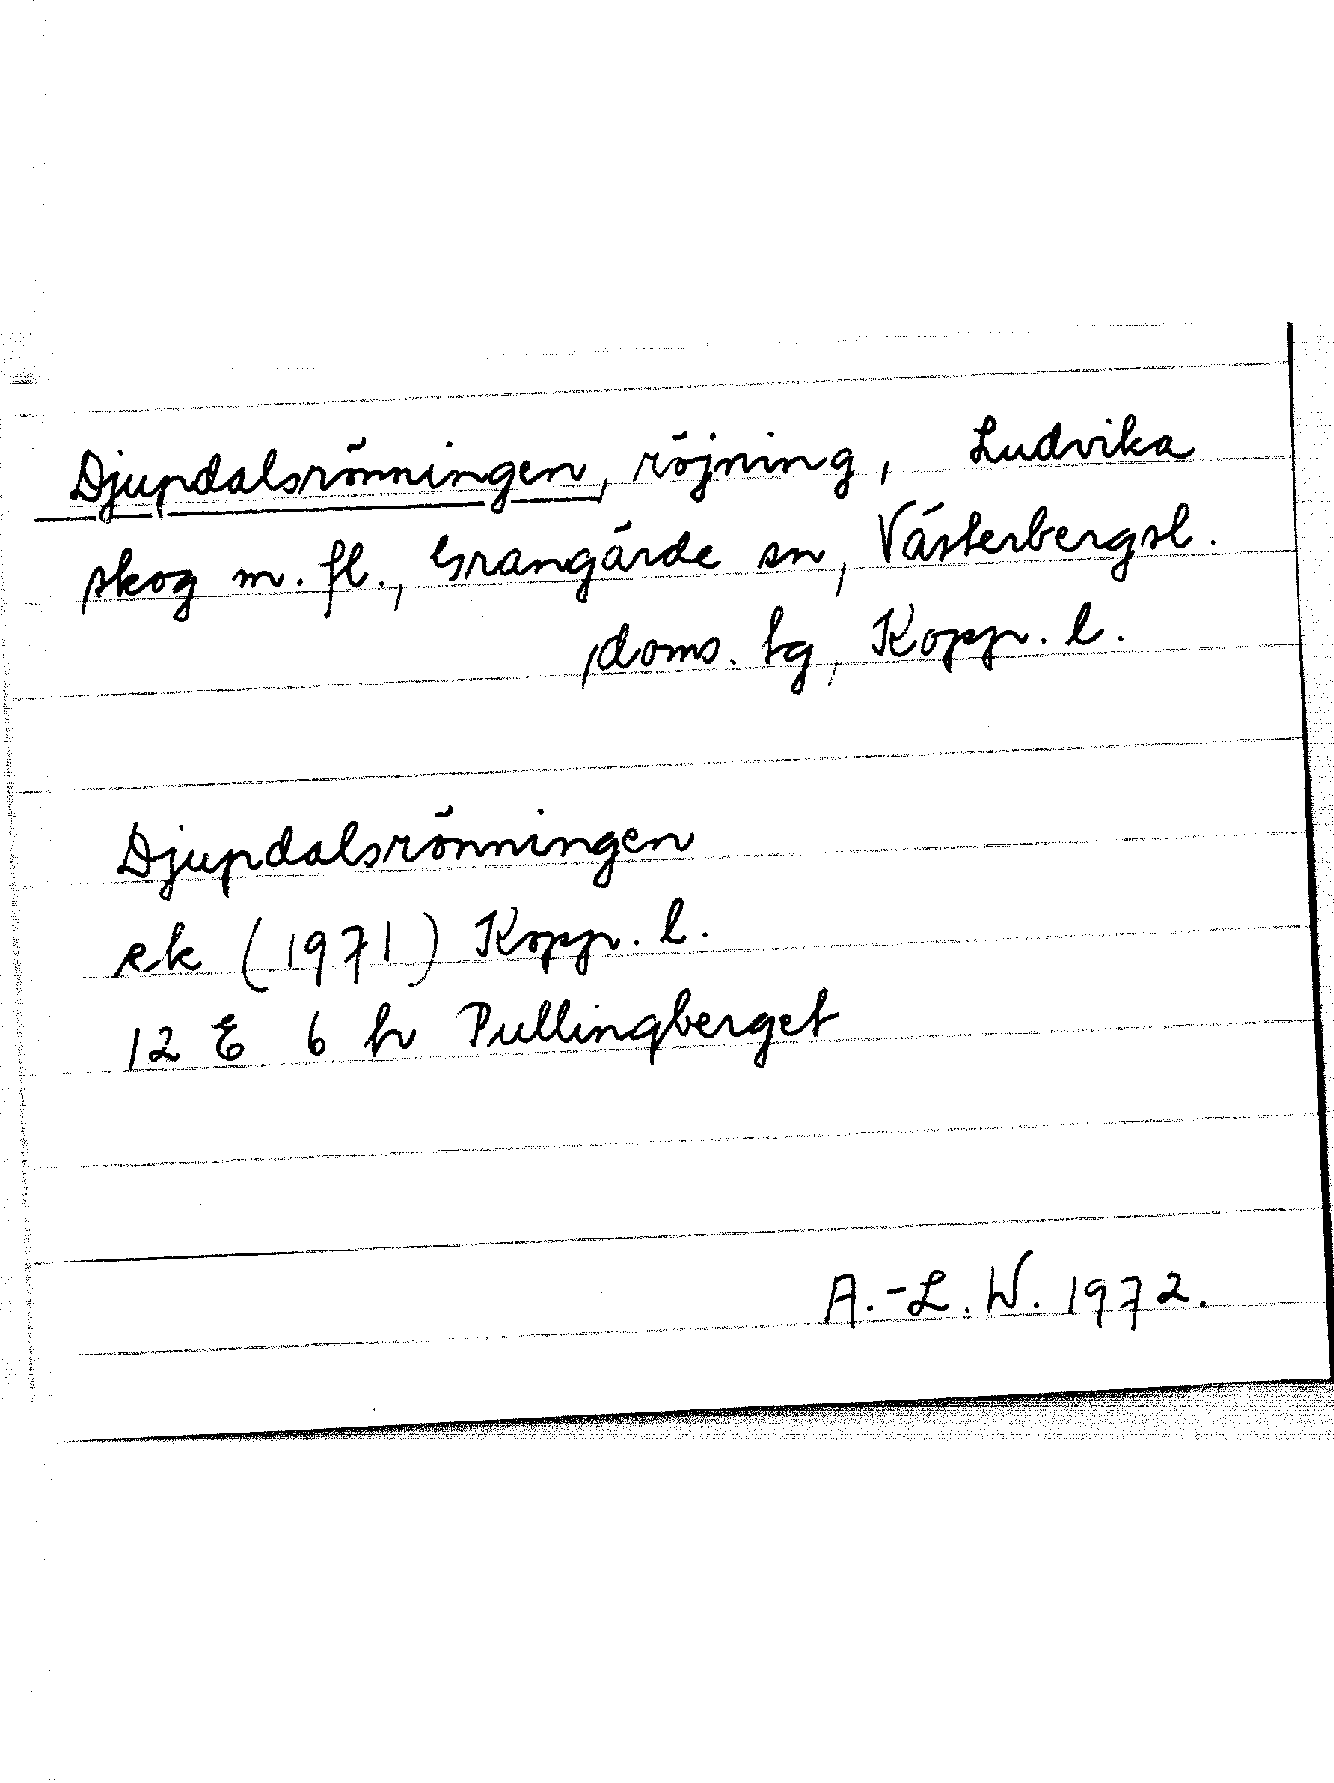 Djupdalsrönningen, röjning, Ludvika
skog m. fl., Grangärde sn, Västerbergsl.
doms. tg, Kopp. l.
Djupdalsrönningen
ek (1971) Kopp. l.
12 E 6 h Pullingberget
A.-L. W. 1972.